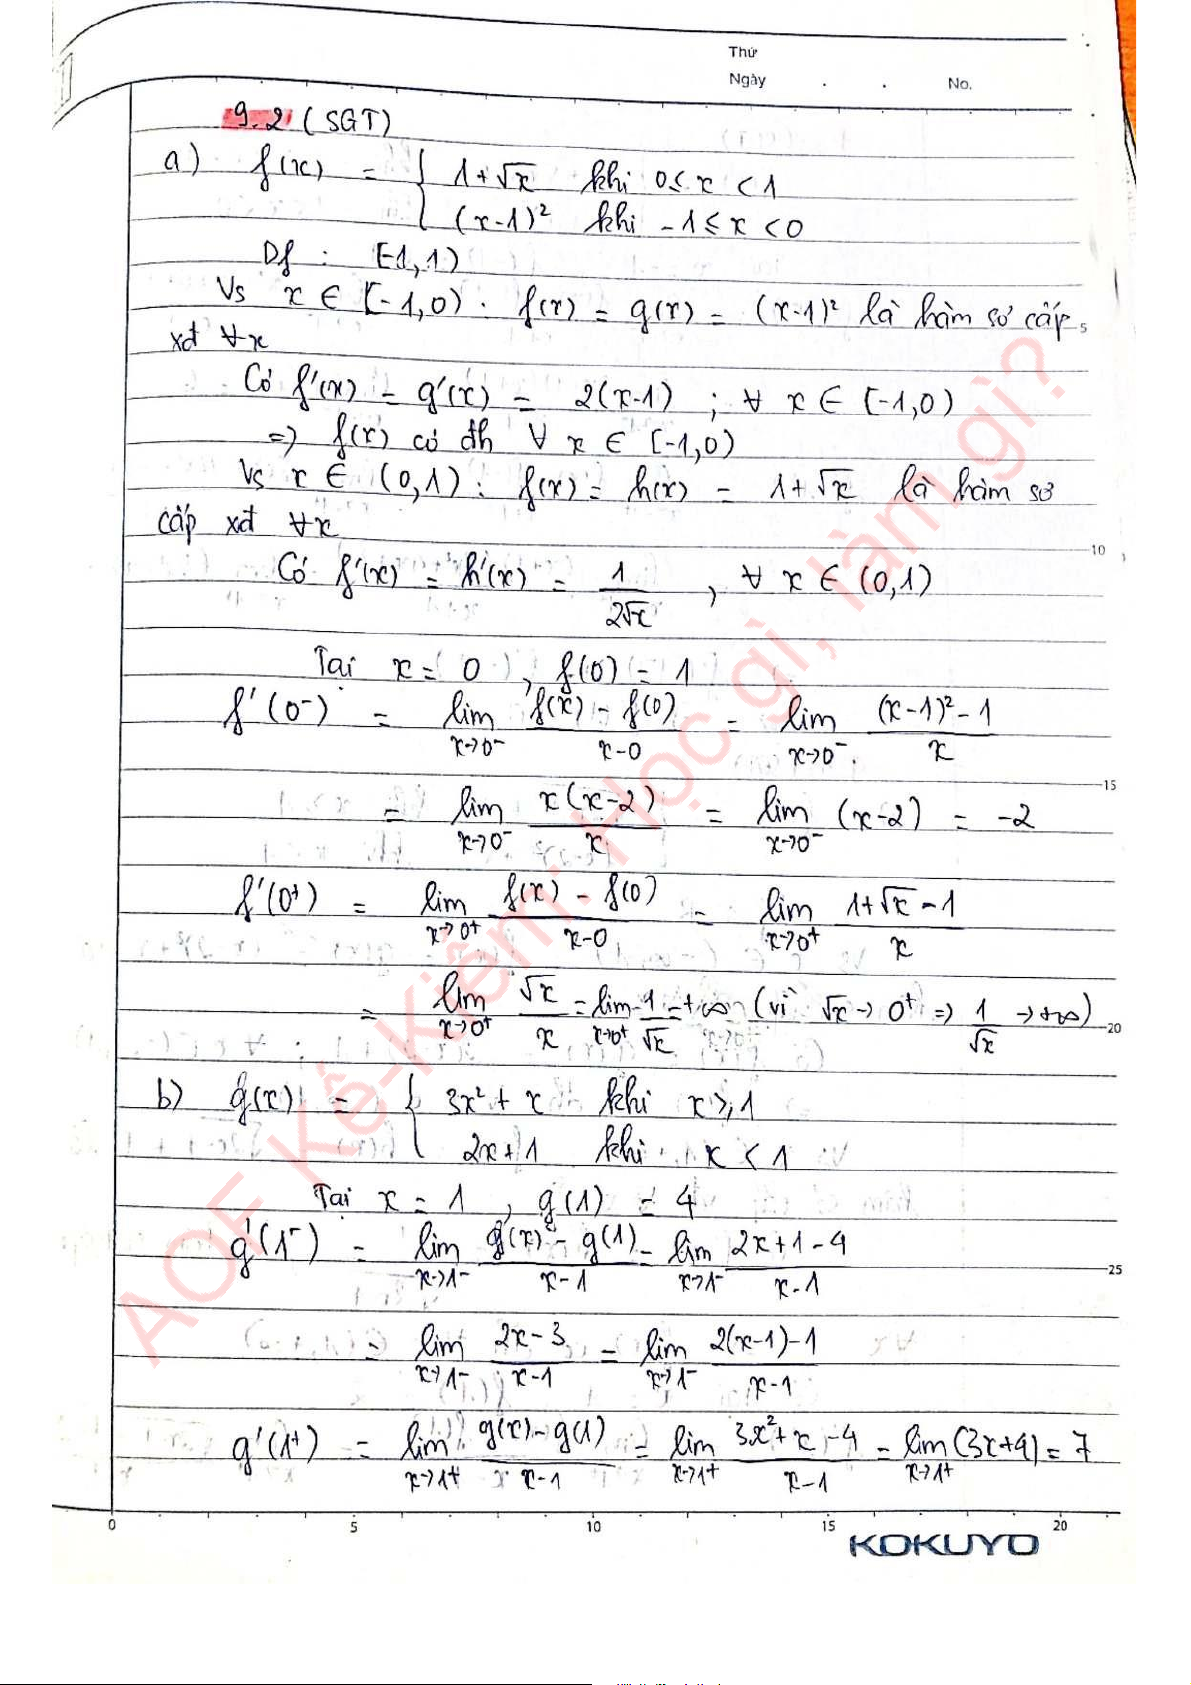 Thứ
Ngày . . No.
9.2 (SGT)
a) f(x) = { 1+√x khi 0≤ x < 1
(x-1)² khi -1 ≤ x < 0
Df : [-1,1)
Vs x ∈ [-1,0) : f(x) = g(x) = (x-1)² là hàm sơ cấp 5
xđ ∀x
Có f'(x) = g'(x) = 2(x-1) ; ∀ x ∈ [-1,0)
=> f(x) có đh ∀ x ∈ [-1,0)
Vs x ∈ (0,1) : f(x) = h(x) = 1+√x là hàm sơ
cấp xđ ∀x
10
Có f'(x) = h'(x) = 1/(2√x) , ∀ x ∈ (0,1)
Tại x = 0 , f(0) = 1
f'(0⁻) = lim x→0⁻ (f(x) - f(0))/(x-0) = lim x→0⁻ ((x-1)² - 1)/x
15
= lim x→0⁻ x(x-2)/x = lim x→0⁻ (x-2) = -2
f'(0⁺) = lim x→0⁺ (f(x) - f(0))/(x-0) = lim x→0⁺ (1+√x - 1)/x
= lim x→0⁺ √x/x = lim x→0⁺ 1/√x = +∞ (vì √x → 0⁺ => 1/√x → +∞) 20
b) g(x) = { 3x² + x khi x ≥ 1
2x+1 khi x < 1
Tại x = 1 , g(1) = 4
g'(1⁻) = lim x→1⁻ (g(x) - g(1))/(x-1) = lim x→1⁻ (2x+1-4)/(x-1)
25
= lim x→1⁻ (2x-3)/(x-1) = lim x→1⁻ (2(x-1)-1)/(x-1)
g'(1⁺) = lim x→1⁺ (g(x)-g(1))/(x-1) = lim x→1⁺ (3x²+x-4)/(x-1) = lim x→1⁺ (3x+4) = 7
0 5 10 15 20
KOKUYO
AOF Kế-Kiểm: Học gì, làm gì?